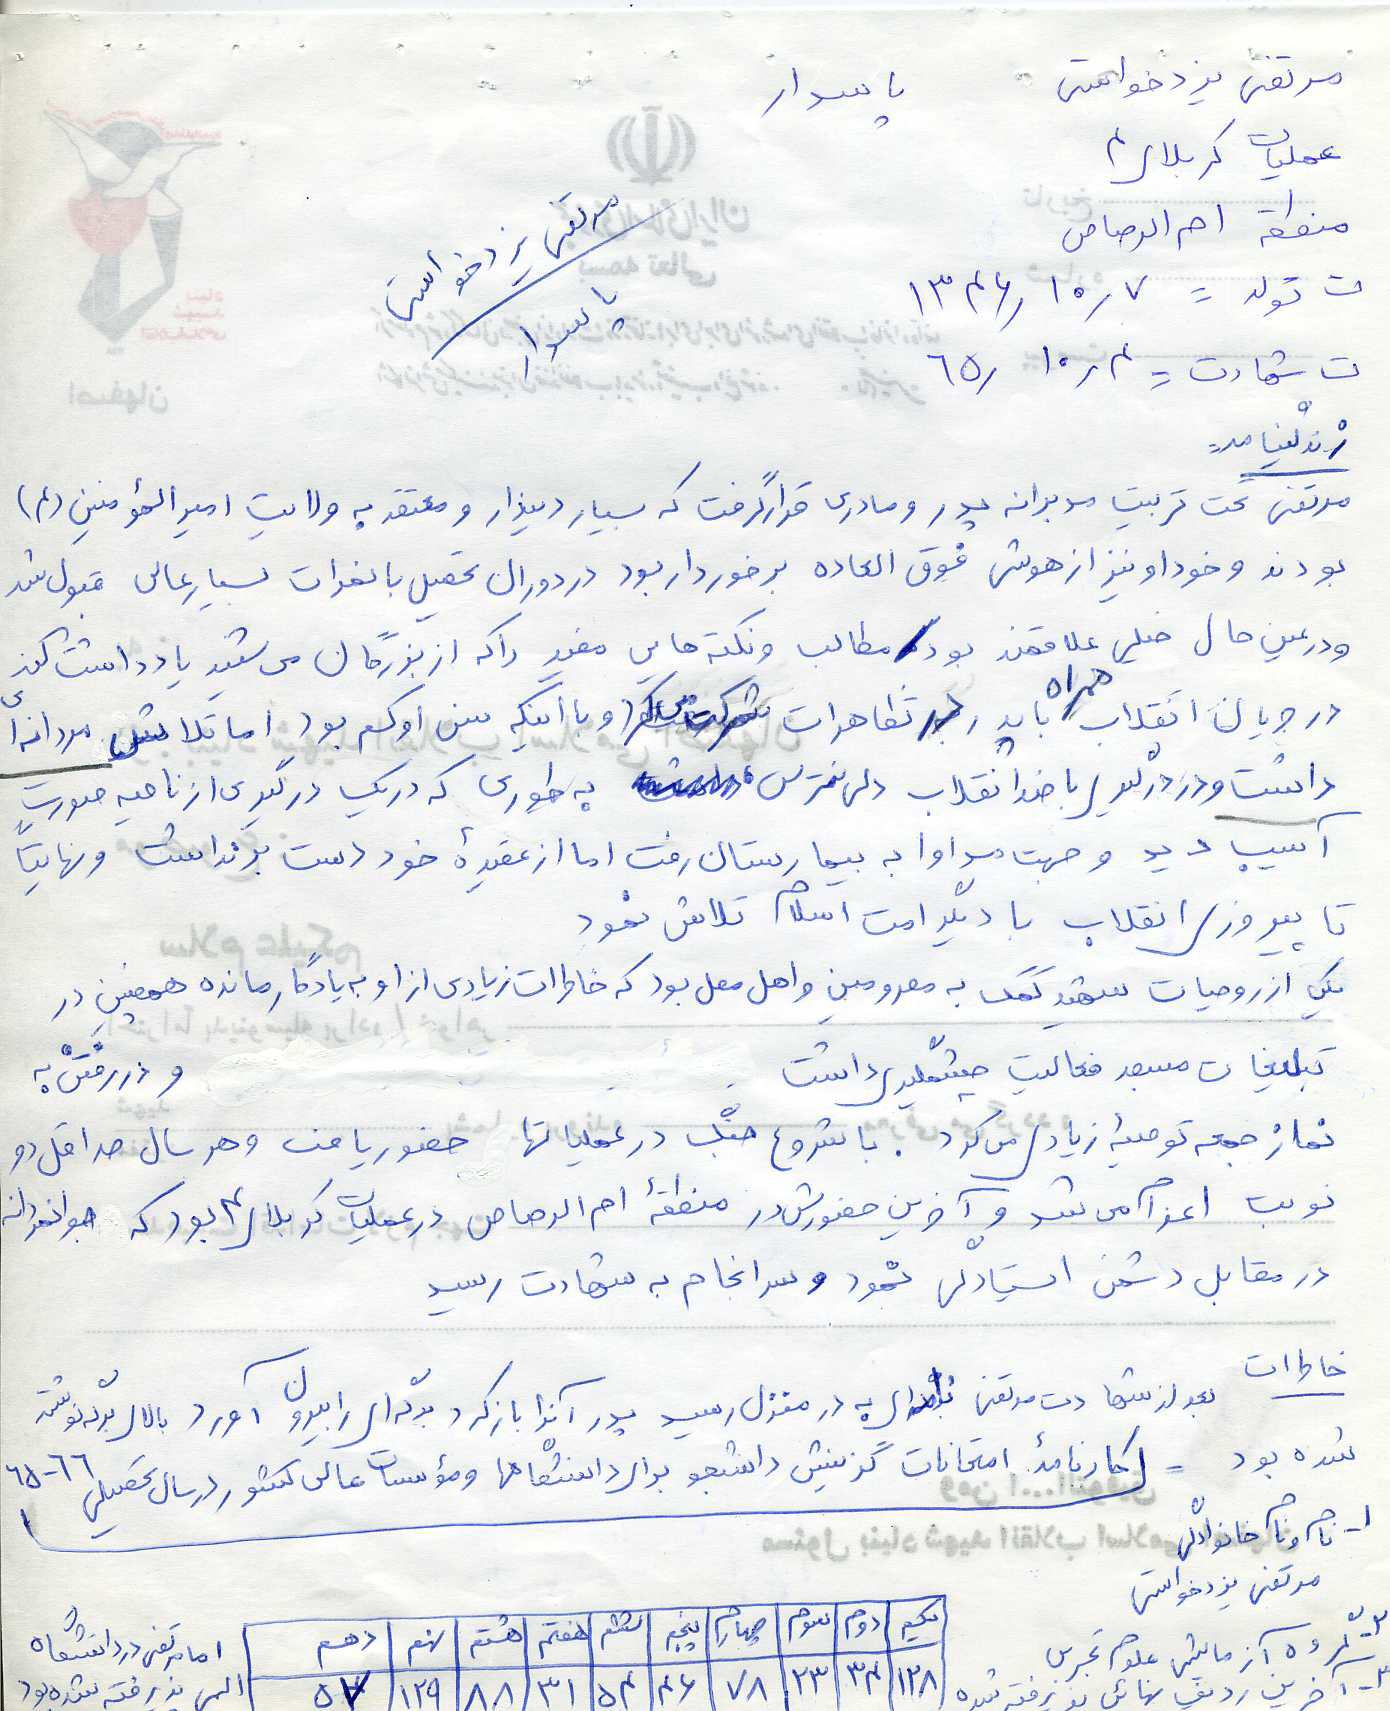 مرتضی یزدخواستی پاسدار
عملیات کربلای ۴
منطقه ام الرصاص
ت تولد = ۱۳۴۶/۱۰/۷
ت شهادت = ۶۵/۱۰/۴
مرتضی یزدخواستی
پاسدار
زندگینامه
مرتضی تحت تربیت مدبرانه پدر و مادری قرار گرفت که بسیار دیندار و معتقد به ولایت امیرالمؤمنین (ع)
بودند و خود او نیز از هوش فوق العاده برخوردار بود در دوران تحصیل با نمرات بسیار عالی قبول شد
و در عین حال خیلی علاقمند بود مطالب و نکته هایی مفید را که از بزرگان می شنید یادداشت کند
در جریان انقلاب همراه با پدر در تظاهرات شرکت میکرد و با اینکه سن او کم بود اما تلاش مردانه ای
داشت و در درگیری با ضد انقلاب دلی نترس داشت به طوری که در یک درگیری از ناحیه صورت
آسیب دید و جهت مداوا به بیمارستان رفت اما از عقیدهٔ خود دست برنداشت و نهایتاً
تا پیروزی انقلاب با دیگر امت اسلام تلاش نمود
یکی از روحیات شهید کمک به محرومین و اهل محل بود که خاطرات زیادی از او به یادگار مانده همچنین در
تبلیغات مسجد فعالیت چشمگیری داشت و در رفتن به
نماز جمعه توصیهٔ زیادی می کرد . با شروع جنگ در عملیاتها حضور یافت و هر سال حداقل دو
نوبت اعزام می شد و آخرین حضورش در منطقهٔ ام الرصاص در عملیات کربلای ۴ بود که جوانمردانه
در مقابل دشمن ایستادگی نمود و سرانجام به شهادت رسید
خاطرات
بعد از شهادت مرتضی نامه ای به در منزل رسید پدر آنرا باز کرد برگه ای را بیرون آورد بالای برگه نوشته
شده بود = کارنامهٔ امتحانات گزینش دانشجو برای دانشگاهها و مؤسسات عالی کشور در سال تحصیلی ۶۶-۶۵
۱- نام و نام خانوادگی
مرتضی یزدخواستی
۲- گروه آزمایشی علوم تجربی
۳- آخرین ردیف نهائی پذیرفته شده
یکم دوم سوم چهارم پنجم ششم هفتم هشتم نهم دهم
۱۲۸ ۳۴ ۲۳ ۷۸ ۴۶ ۵۴ ۳۱ ۸۸ ۱۲۹ ۵۷
اما مرتضی در دانشگاه
الهی پذیرفته شده بود